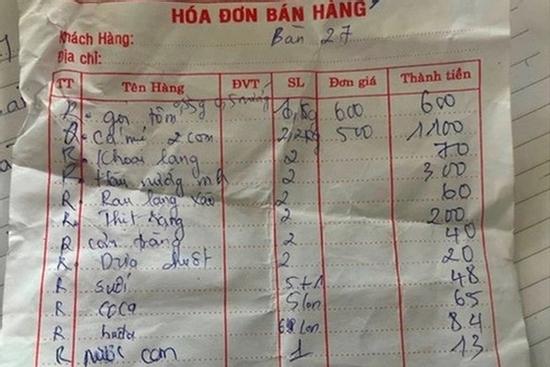 HÓA ĐƠN BÁN HÀNG
Khách Hàng: Bàn 27
Địa chỉ:
TT Tên Hàng ĐVT SL Đơn giá Thành tiền
R gỏi tôm 600 600
R Cá mú 2 con 2,2kg 500 1100
R Khoai lang 2 70
R Hàu nướng mh 2 300
R Rau lang xào 2 60
R Thịt 2 200
R cơm trắng 2 40
R Dưa chuột 2 20
R suối 5+1 48
R coca 5 lon 65
R lon 84
R nước cam 1 13